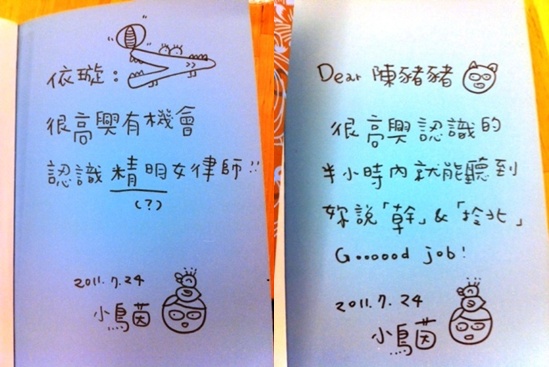 依璇：
很高興有機會
認識精明女律師!!
(?)
2011.7.24
小鳥茵
Dear 陳豬豬
很高興認識的
半小時內就能聽到
妳說「幹」&「拎北」
Goooood job!
2011.7.24
小鳥茵